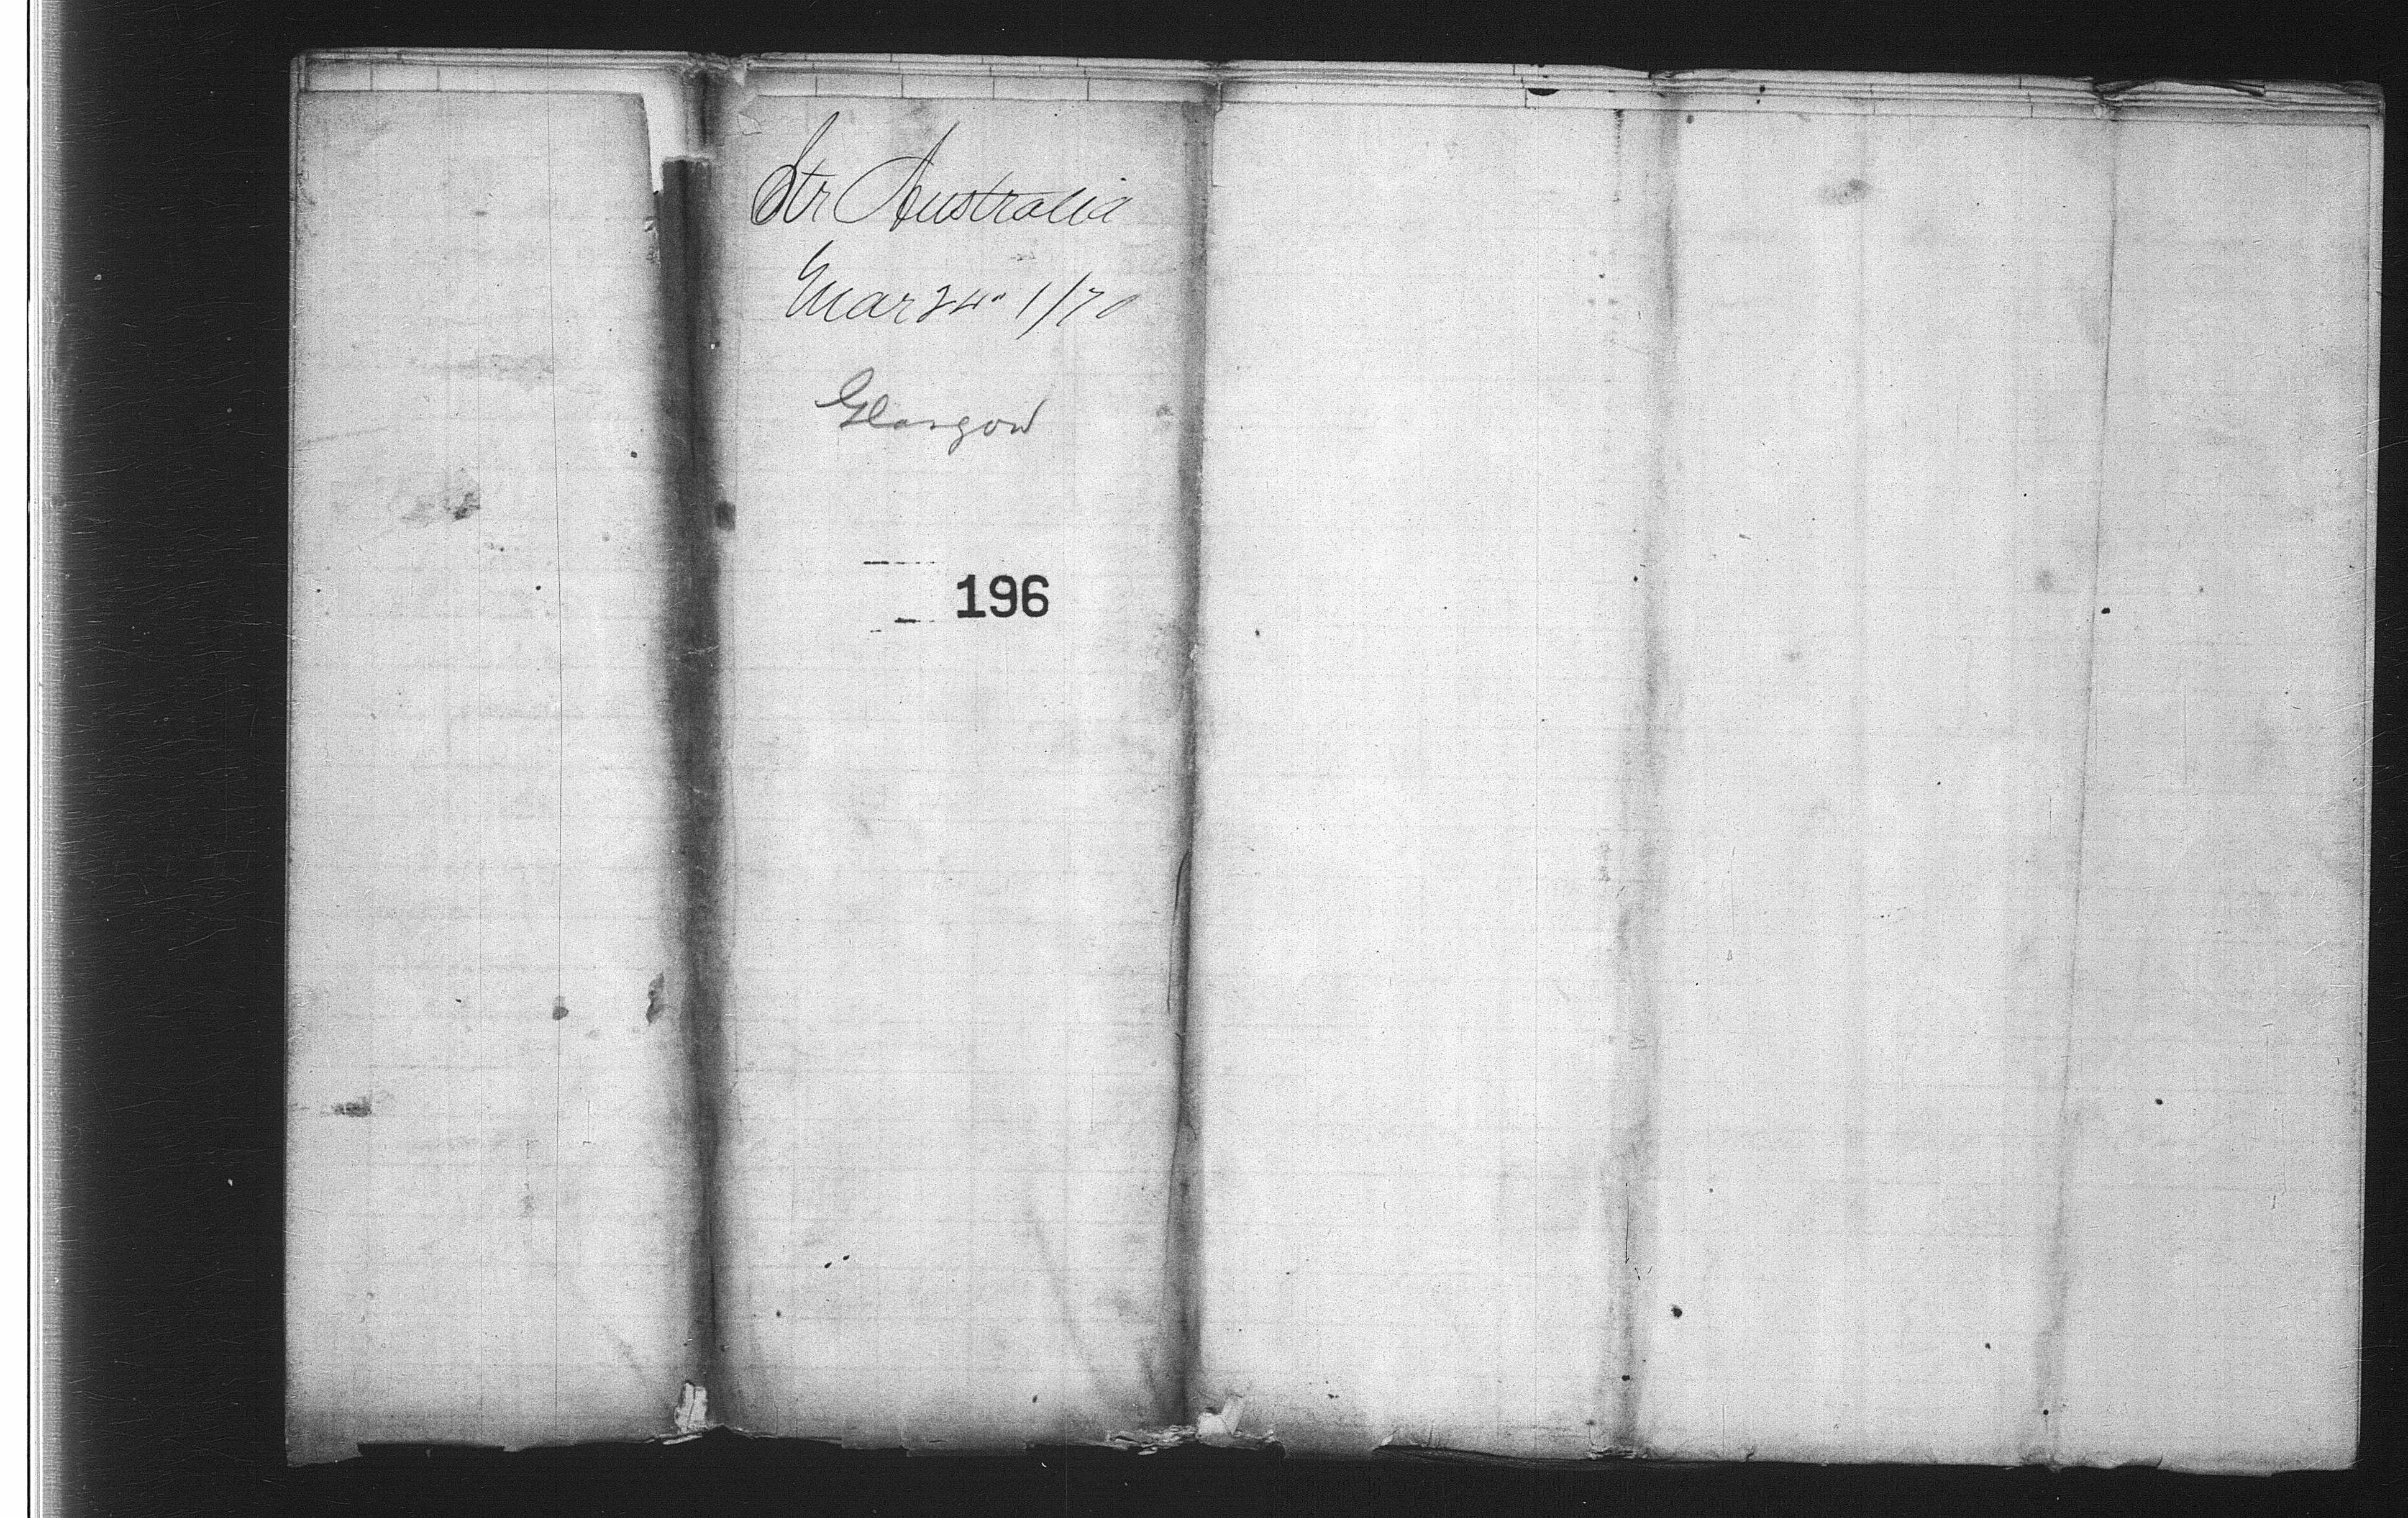 Str Australia
Mar 24" 1/70
Glasgow
196